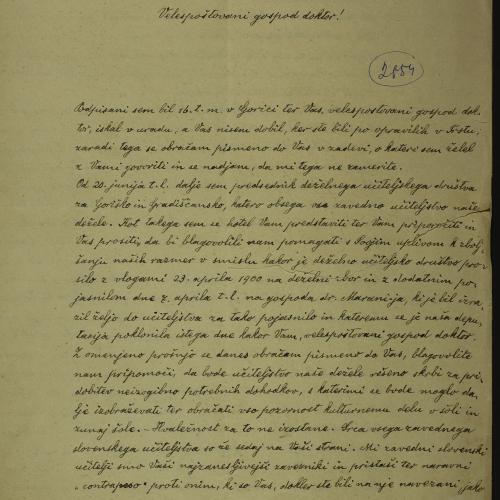 Velespoštovani gospod doktor!
2884
Podpisani sem bil 16. t. m. v Gorici ter Vas, velespoštovani gospod dok-
tor, iskal v uradu, a Vas nisem dobil, ker ste bili po opravilih v Trstu;
zaradi tega se obračam pismeno do Vas v zadevi, o kateri sem želel
z Vami govoriti in se nadjam, da mi tega ne zamerite.
Od 20. junija t. l. dalje sem predsednik deželnega učiteljskega društva
za Goriško in Gradiščansko, katero obsega vse zavedno učiteljstvo naše
dežele. Kot takega sem se hotel Vam predstaviti ter Vam pripovročiti in
Vas prositi, da bi blagovolili nam pomagati s Svojim uplivom k zbolj-
šanju naših razmer v smislu kakor je deželno učiteljsko društvo pro-
silo z vlogami 23. aprila 1900 na deželni zbor in z dodatnim po-
jasnilom dne 7. aprila t. l. na gospoda dr. Maranija, ki je bil izra-
zil željo do učiteljstva za tako pojasnilo in kateremu se je naša depu-
tacija poklonila istega dne kakor Vam, velespoštovani gospod doktor.
Z omenjeno prošnjo se danes obračam pismeno do Vas, blagovolite
nam pripomoči, da bode učiteljstvo naše dežele rešeno skrbi za pri-
dobitev neizogibno potrebnih dohodkov, s katerimi se bode moglo da-
lje izobraževati ter obračati vso pozornost kulturnemu delu v šoli in
zunaj šole. - Hvaležnost za to ne izostane. Srca vsega zavednega
slovenskega učiteljstva so že sedaj na Vaši strani. Mi zavedni slovenski
učitelji smo Vaši najzanesljivejši zavezniki in pristaši ter naravni
"contrapeso" proti onim, ki so Vas, dokler ste bili nanje navezani, jako